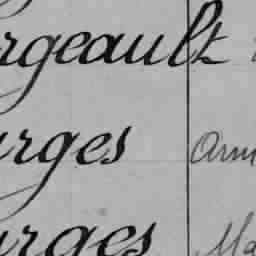 rgeault
urges Arm
urges Ma